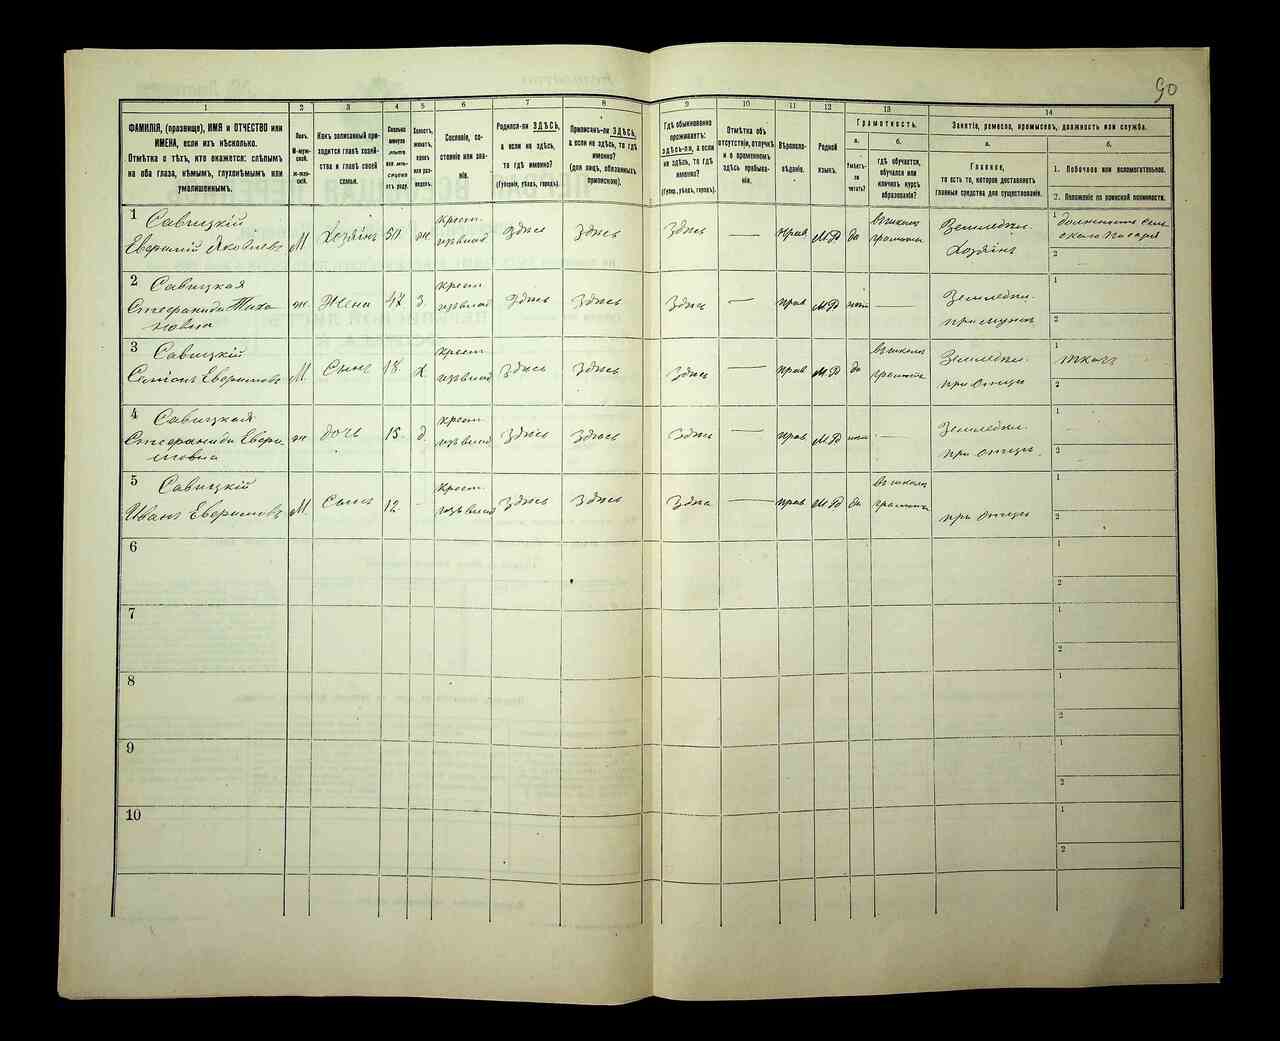 90
1
2
3
4
5
6
7
8
9
10
11
12
13
14
ФАМИЛІЯ, (прозвище), ИМЯ и ОТЧЕСТВО или
ИМЕНА, если ихъ нѣсколько.
Отмѣтка о тѣхъ, кто окажется: слѣпымъ
на оба глаза, нѣмымъ, глухонѣмымъ или
умалишеннымъ.
Полъ.
М-муж-
ской.
Ж-жен-
скій.
Какъ записанный при-
ходится главѣ хозяй-
ства и главѣ своей
семьи.
Сколько
минуло
лѣтъ
или мѣ-
сяцевъ
отъ роду.
Холостъ,
женатъ,
вдовъ
или раз-
веденъ.
Сословіе, со-
стояніе или зва-
ніе.
Родился-ли ЗДѢСЬ,
а если не здѣсь,
то гдѣ именно?
(Губернія, уѣздъ, городъ).
Приписанъ-ли ЗДѢСЬ,
а если не здѣсь, то гдѣ
именно?
(для лицъ, обязанныхъ
припискою).
Гдѣ обыкновенно
проживаетъ:
здѣсь-ли, а если
не здѣсь, то гдѣ
именно?
(Губер., уѣздъ, городъ).
Отмѣтка объ
отсутствіи, отлучкѣ
и о временномъ
здѣсь пребыва-
ніи.
Вѣроиспо-
вѣданіе.
Родной
языкъ.
Грамотность.
а.
Умѣетъ-
ли
читать?
б.
гдѣ обучается,
обучался или
кончилъ курсъ
образованія?
Занятіе, ремесло, промыселъ, должность или служба.
а.
Главное,
то есть то, которое доставляетъ
главныя средства для существованія.
б.
1. Побочное или вспомогательное.
2. Положеніе по воинской повинности.
1
Савицкій
Яковлевъ
М Хозяинъ 50 ж крест. здѣсь здѣсь здѣсь — прав М.Р да въ школѣ Земледѣл. Хозяинъ
1 должность сельскаго писаря
2
2
Савицкая
Стефанида Тихо
новна
ж жена 47 з крест. здѣсь здѣсь здѣсь — прав М.Р нѣтъ — Земледѣл.
при мужѣ
1
2
3
Савицкій
М Сынъ 18 х крест. здѣсь здѣсь здѣсь — прав М.Р да въ школѣ Земледѣл.
при отцѣ
1 ткачъ
2
4
Савицкая
Стефанида
ж дочь 15 д крест. здѣсь здѣсь здѣсь — прав М.Р — Земледѣл.
при отцѣ
1
2
5
Савицкій
Иванъ
М Сынъ 12 — крест. здѣсь здѣсь здѣсь — прав М.Р да въ школѣ
при отцѣ
1
2
6
1
2
7
1
2
8
1
2
9
1
2
10
1
2